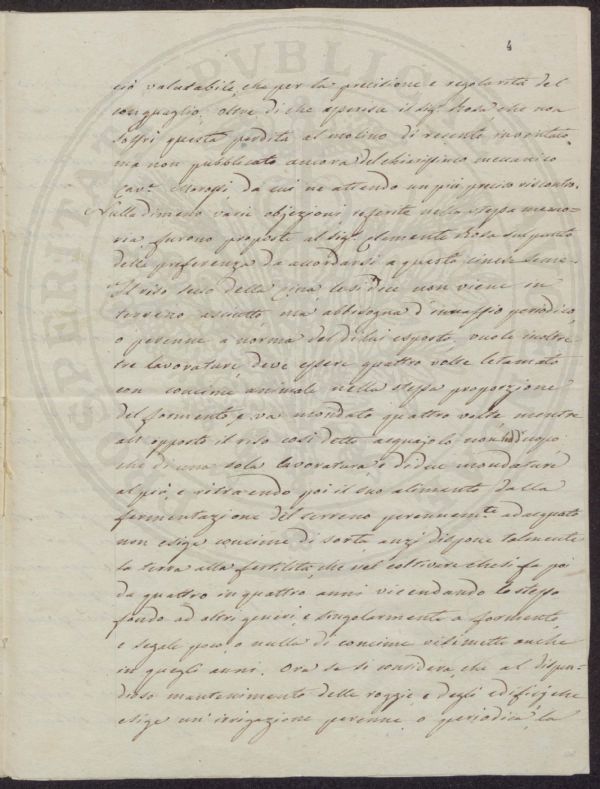 4
ciò valutabile, che per la precisione e regolarità del
conguaglio, oltre di che asserisca il sig. Rosa che non
soffrì questa perdita al molino di recente inventato
ma non pubblicato ancora del chiarissimo meccanico
Cav. Morosi da cui ne attendo un più preciso riscontro.
Nulladimeno varie objezioni, referite nella stessa memo=
ria furono proposte al sig. Clemente Rosa sul punto
della preferenza da accordarsi a questo cinese seme.
Il riso secco della Cina così dice non viene in
terreno asciutto ma abbisogna d'innaffio periodico
o perenne a norma del di lui esposto, vuole inoltre
tre lavorature, deve essere quattro volte letamato
con concime animale nella stessa proporzione
del formento, e va mondato quattro volte mentre
all'opposto il riso così detto acquajolo non ha d'uopo
che di una sola lavoratura e di due mondature
al più, e ritraendo poi il suo alimento dalla
fermentazione del terreno perennem.te adacquato
non esige concime di sorta, anzi dispone talmente
la terra alla fertilità, che nel coltivare che si fa poi
da quattro in quattro anni vicendando lo stesso
fondo ad altri generi, e singolarmente a formento
e segale poco o nulla di concime vi si mette anche
in quegli anni. Ora se si considera, che al dispen=
dioso mantenimento delle roggie e degli edifizj che
esige un'irrigazione perenne o periodica la